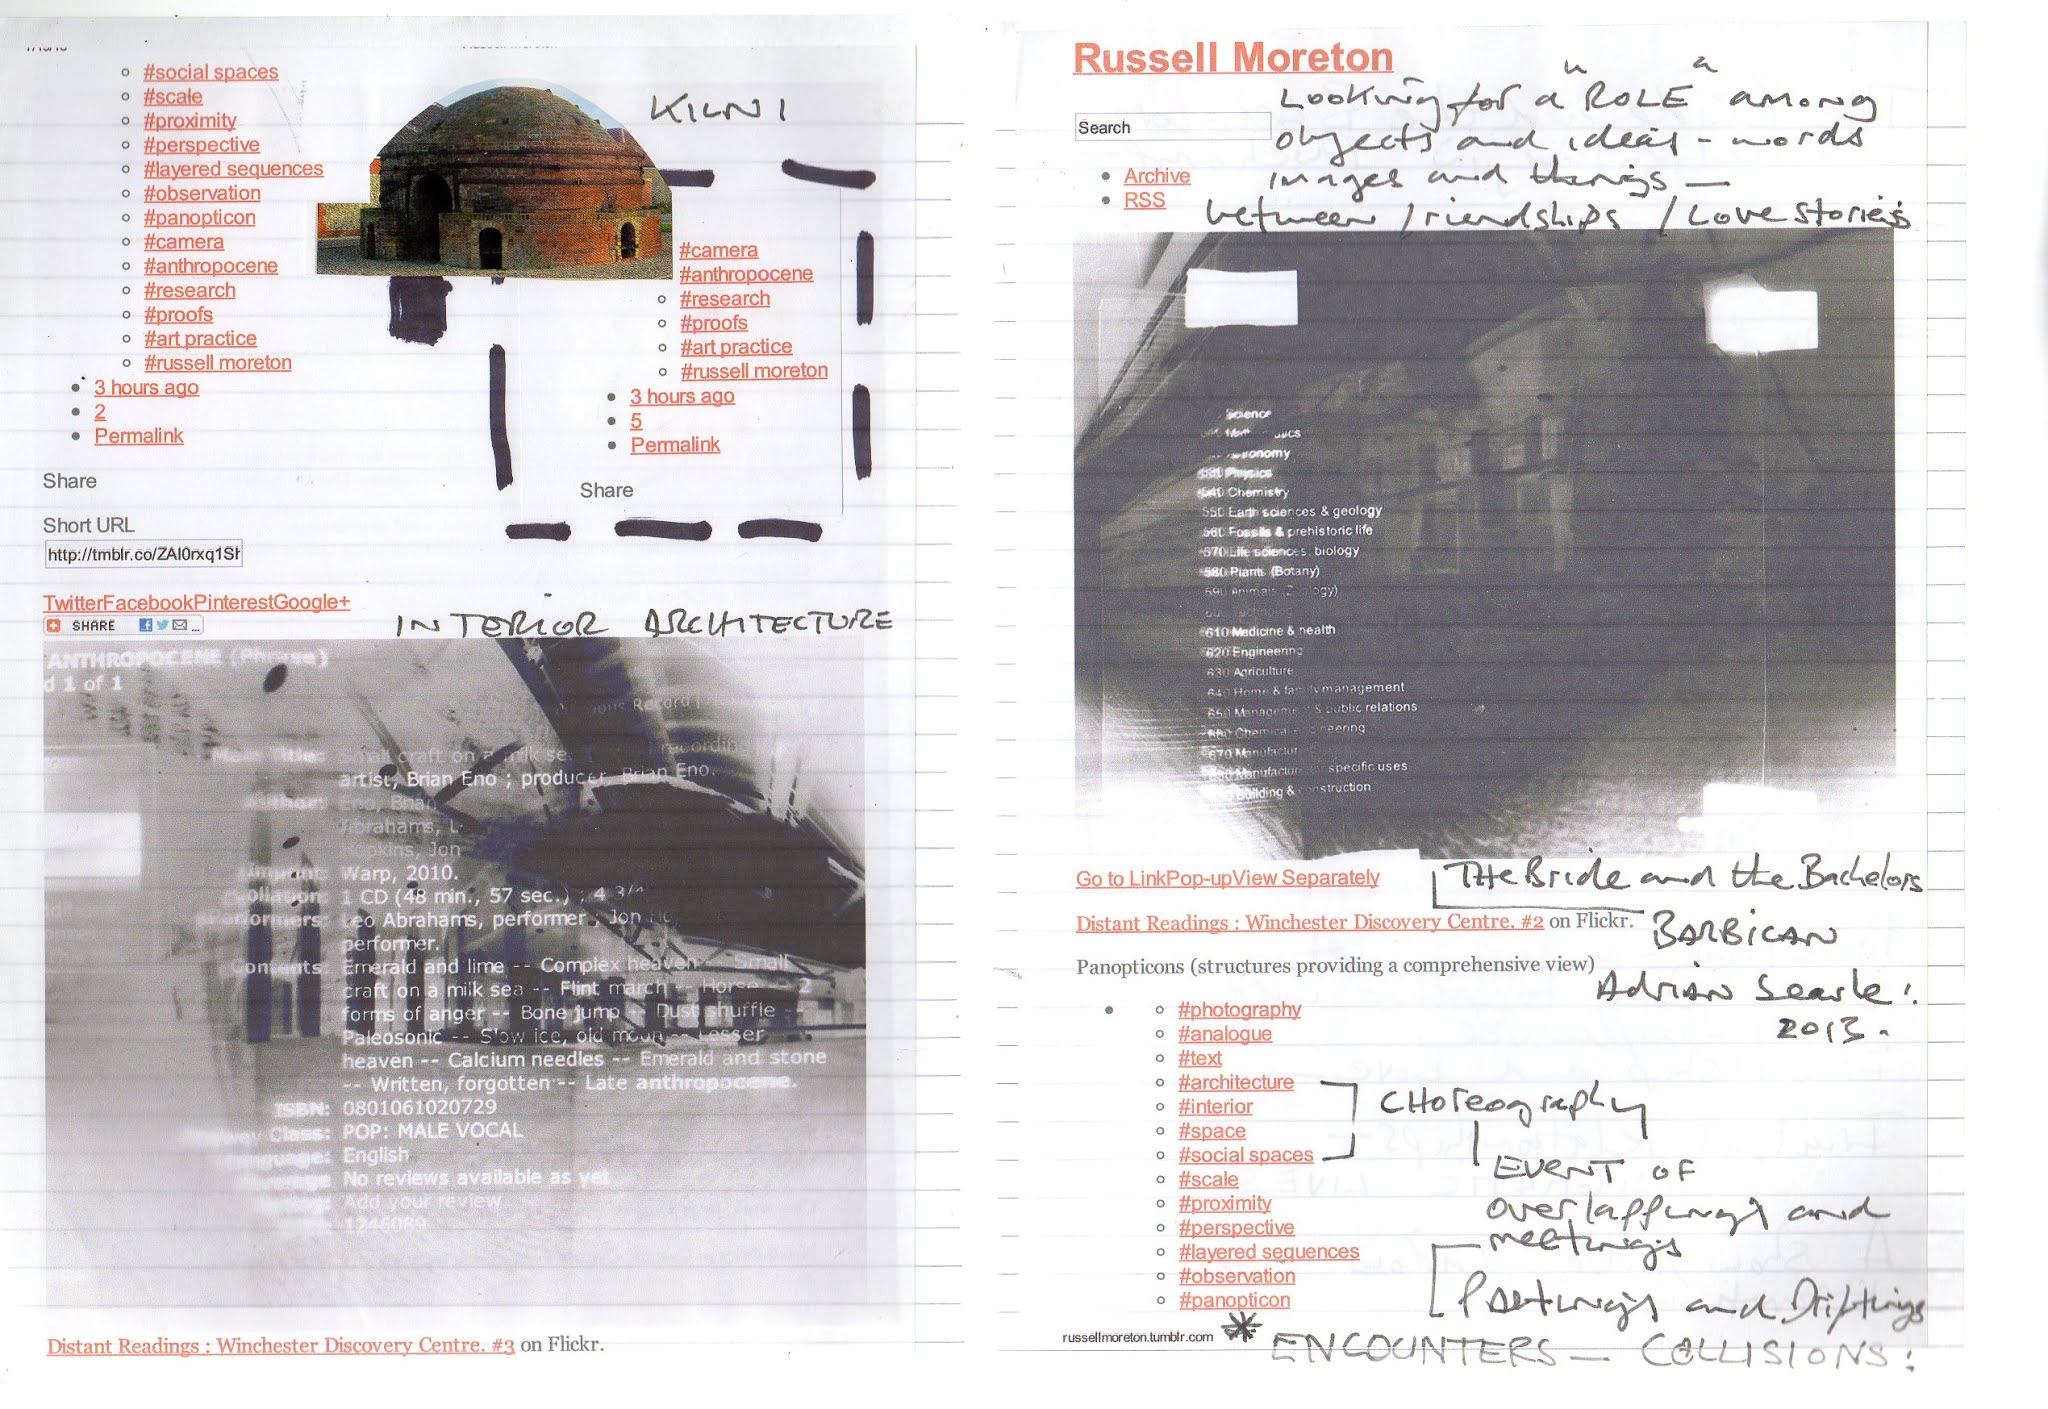 #social spaces
#scale
#proximity
#perspective
#layered sequences
#observation
#panopticon
#camera
#anthropocene
#research
#proofs
#art practice
#russell moreton
3 hours ago
2
Permalink
Share
Short URL
http://tmblr.co/ZAl0rxq1SH
TwitterFacebookPinterestGoogle+
SHARE ...
KILN 1
#camera
#anthropocene
#research
#proofs
#art practice
#russell moreton
3 hours ago
5
Permalink
Share
INTERIOR ARCHITECTURE
ANTHROPOCENE (Phrase)
d 1 of 1
Record
Main Title: Small craft on a milk sea recording
artist, Brian Eno ; producer, Brian Eno.
Author: Eno, Brian
Abrahams, L
Hopkins, Jon
Imprint: Warp, 2010.
Collation: 1 CD (48 min., 57 sec.) ; 4 3/4
Performers: Leo Abrahams, performer ; Jon
performer.
Contents: Emerald and lime -- Complex heaven -- Small
craft on a milk sea -- Flint march -- Horse -- 2
forms of anger -- Bone jump -- Dust shuffle --
Paleosonic -- Slow ice, old moon -- Lesser
heaven -- Calcium needles -- Emerald and stone
-- Written, forgotten -- Late anthropocene.
ISBN: 0801061020729
Class: POP: MALE VOCAL
Language: English
No reviews available as yet
Add your review
1246089
Distant Readings : Winchester Discovery Centre. #3 on Flickr.
Russell Moreton
Search
Archive
RSS
Looking for a "ROLE" among
objects and ideas - words
images and things —
between friendships / Love stories
Science
Mathematics
Astronomy
530 Physics
540 Chemistry
550 Earth sciences & geology
560 Fossils & prehistoric life
570 Life sciences, biology
580 Plants (Botany)
590 Animals (Zoology)
610 Medicine & health
620 Engineering
630 Agriculture
640 Home & family management
650 Management & public relations
660 Chemical engineering
670 Manufacturing
680 Manufacture for specific uses
Building & construction
Go to LinkPop-upView Separately
The Bride and the Bachelors
Distant Readings : Winchester Discovery Centre. #2 on Flickr.
BARBICAN
Panopticons (structures providing a comprehensive view)
Adrian Searle:
2013.
#photography
#analogue
#text
#architecture
#interior
#space
#social spaces
#scale
#proximity
#perspective
#layered sequences
#observation
#panopticon
CHoreography
EVENT OF
overlappings and
meetings
Partings and Driftings
russellmoreton.tumblr.com
ENCOUNTERS — COLLISIONS: